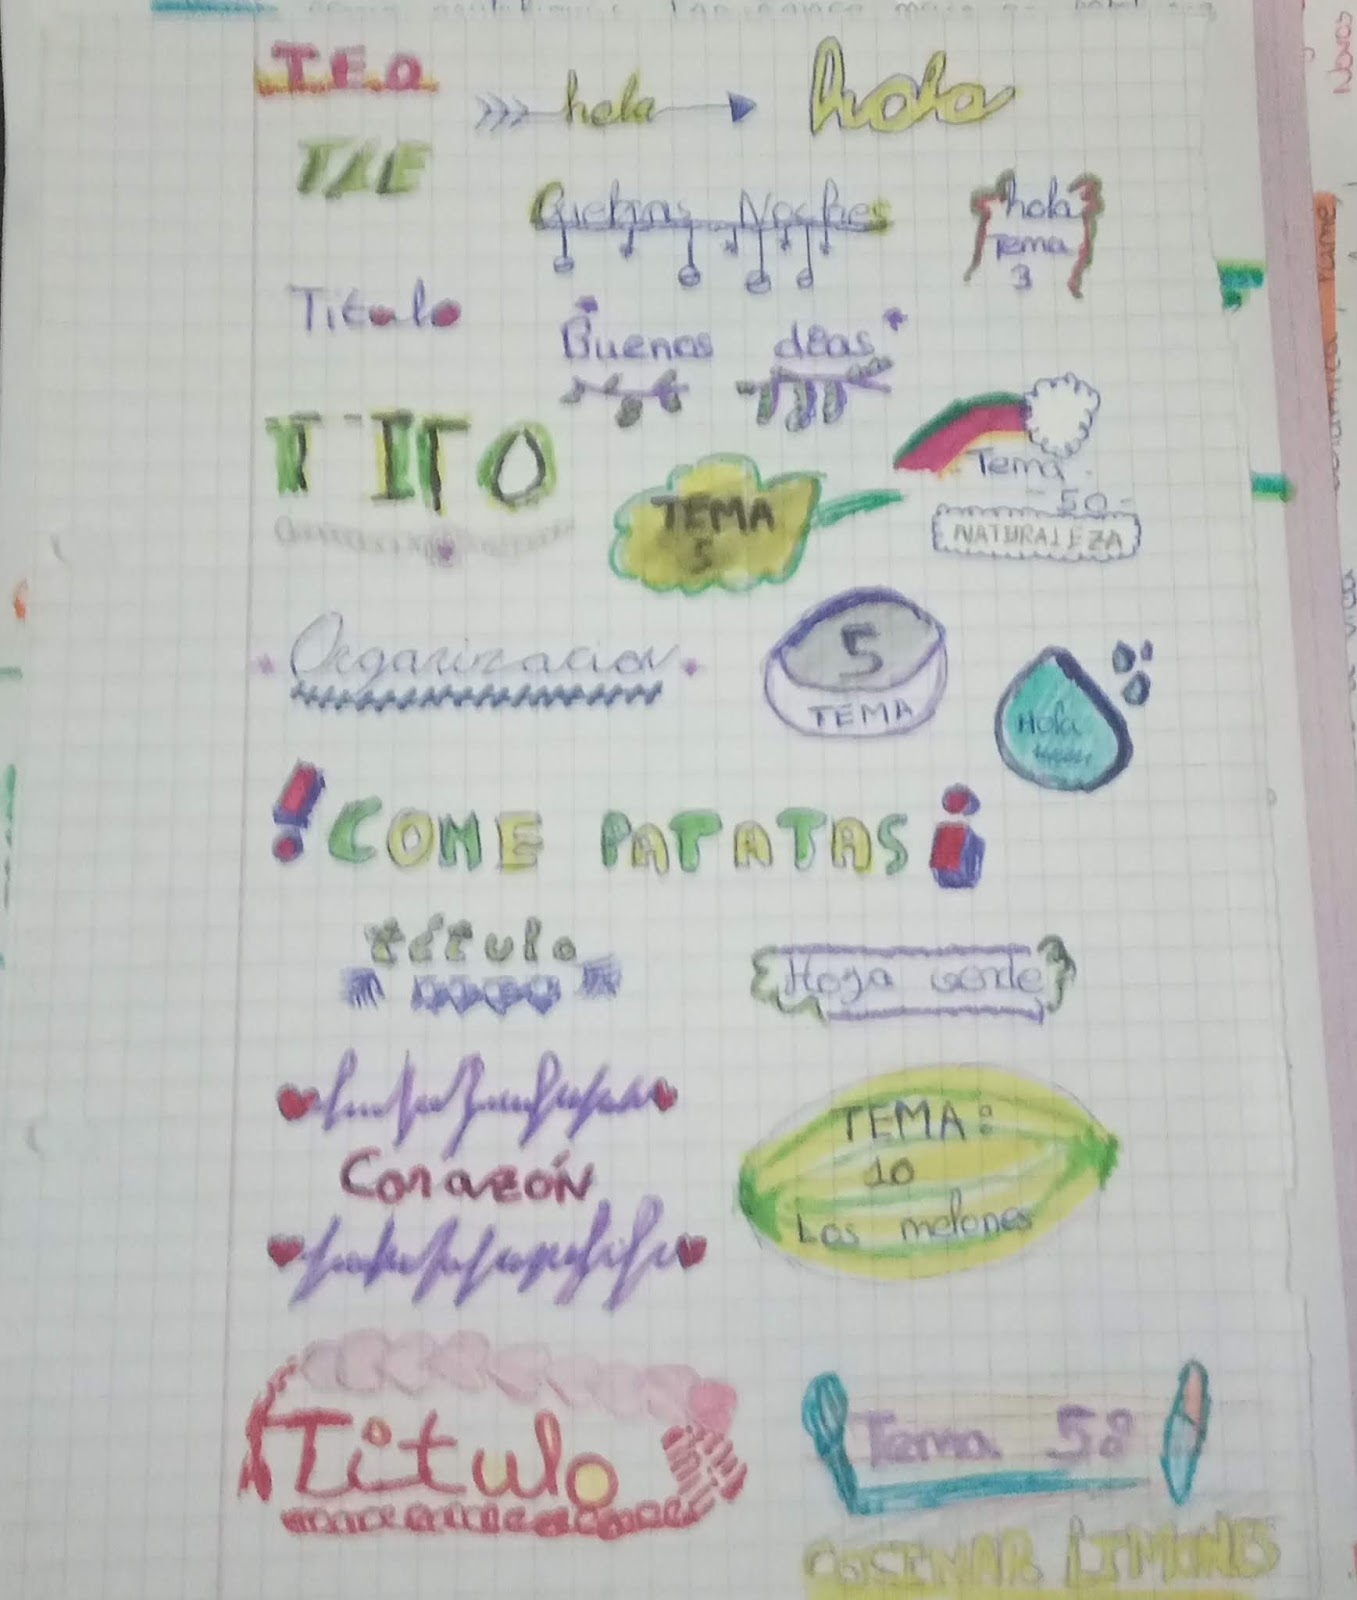 T.E.O
hola
hola
TLE
Quebras Noches
hola
Tema
3
Titulo
Buenos dias
TITO
TEMA
5
Tema
-50-
NATURALEZA
Organizacion
5
TEMA
Hola
! COME PATATAS ¡
título
Hoja verde
Corazón
TEMA:
10
Los melones
Titulo
Tema 58
LIMONES